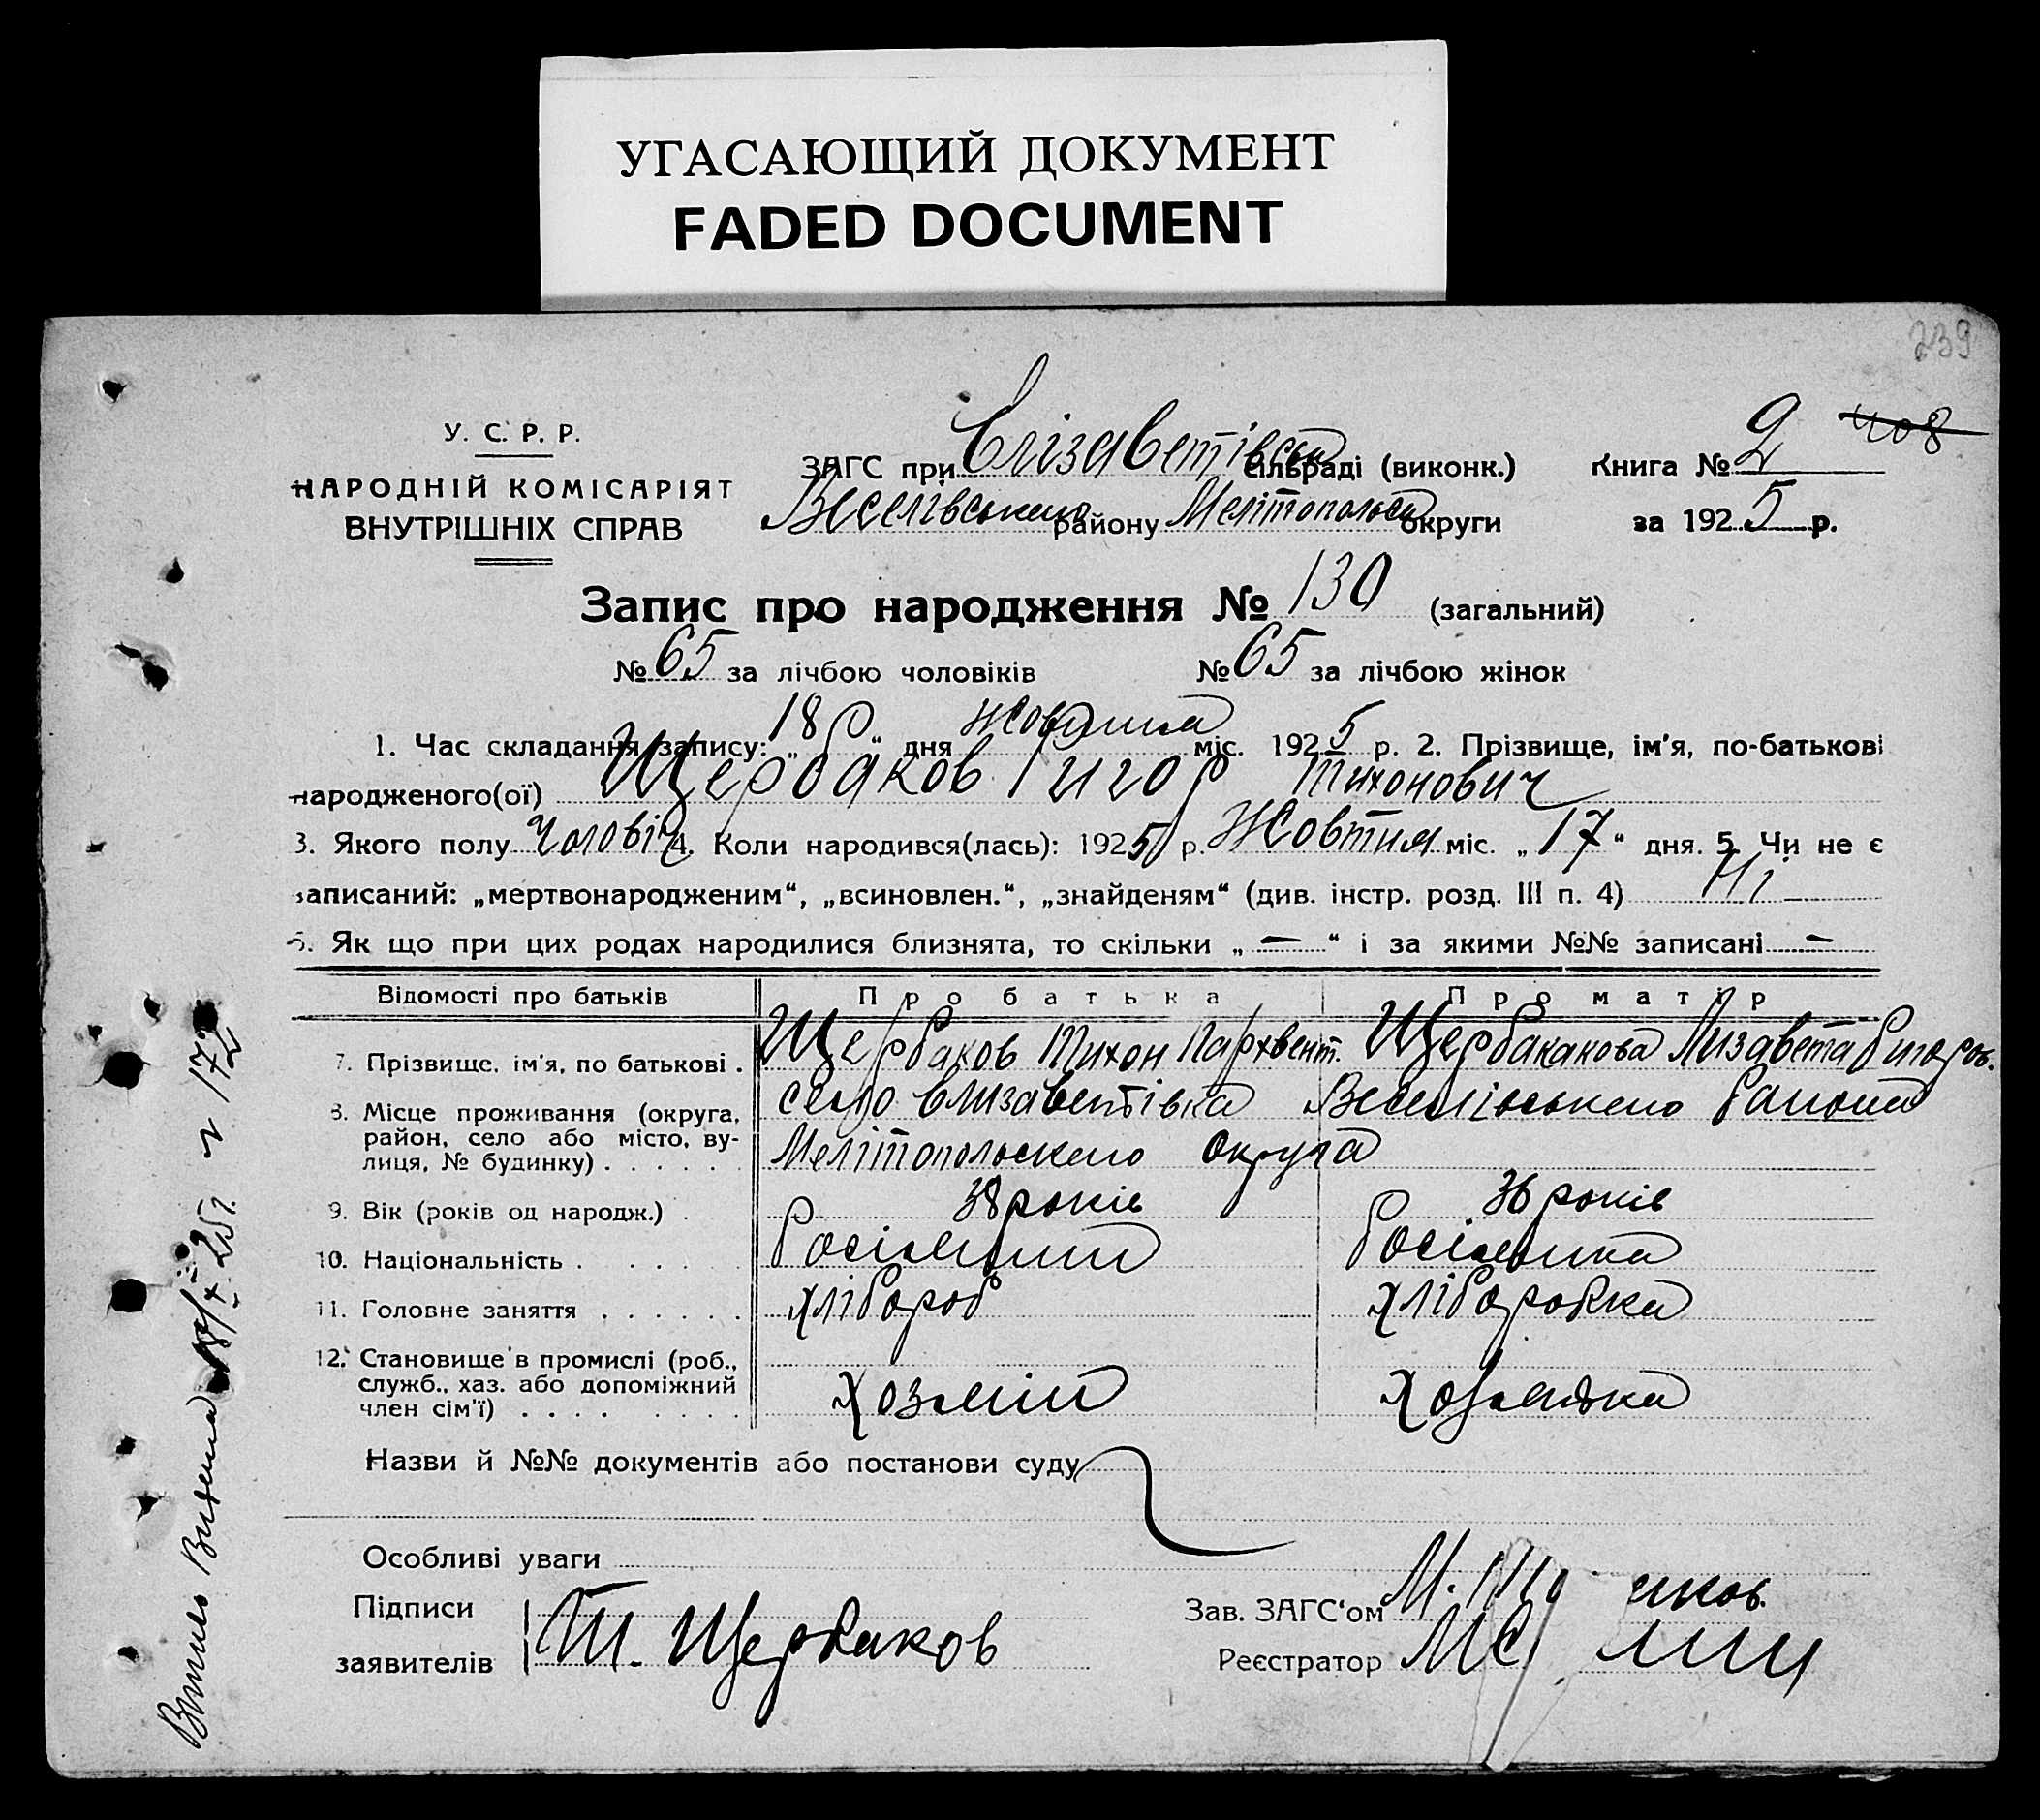 УГАСАЮЩИЙ ДОКУМЕНТ
FADED DOCUMENT
239
У. С. Р. Р.
НАРОДНІЙ КОМІСАРІЯТ
ВНУТРІШНІХ СПРАВ
ЗАГС при Єлізаветівськ сільраді (виконк.)
Веселівського району Мелітопольськ округи
Книга № 2 408
за 1925 р.
Запис про народження № 130 (загальний)
№ 65 за лічбою чоловіків № 65 за лічбою жінок
1. Час складання запису: „ 18 “ дня жовтня міс. 1925 р. 2. Прізвище, ім'я, по-батькові
народженого(ої) Щербаков Григор Тихонович
3. Якого полу чоловіч 4. Коли народився(лась): 1925 р. Жовтня міс. „ 17 “ дня. 5. Чи не є
записаний: „мертвонародженим“, „всиновлен.“, „знайденям“ (див. інстр. розд. III п. 4) Ні
6. Як що при цих родах народилися близнята, то скільки „ — “ і за якими №№ записані —
Відомості про батьків Про батька Про матір
7. Прізвище, ім'я, по батькові . Щербаков Тихон Пархвент. Щербакакова Лизавета Григоров.
8. Місце проживання (округа, район, село або місто, вулиця, № будинку) . . . . . . село Елизаветівка Веселівського району
Мелітопольского округа
9. Вік (років од народж.) . 38 років 36 років
10. Національність . . . . . . Росіянин Росіянка
11. Головне заняття . . . . . . хлібороб хліборобка
12. Становище в промислі (роб., служб., хаз. або допоміжний член сім'ї) . . . . . . . . Хозяїн Хозяйка
Назви й №№ документів або постанови суду
Особливі уваги
Підписи
заявителів Т. Щербаков
Зав. ЗАГС'ом М.
Реєстратор
18/X 25 г. № 172